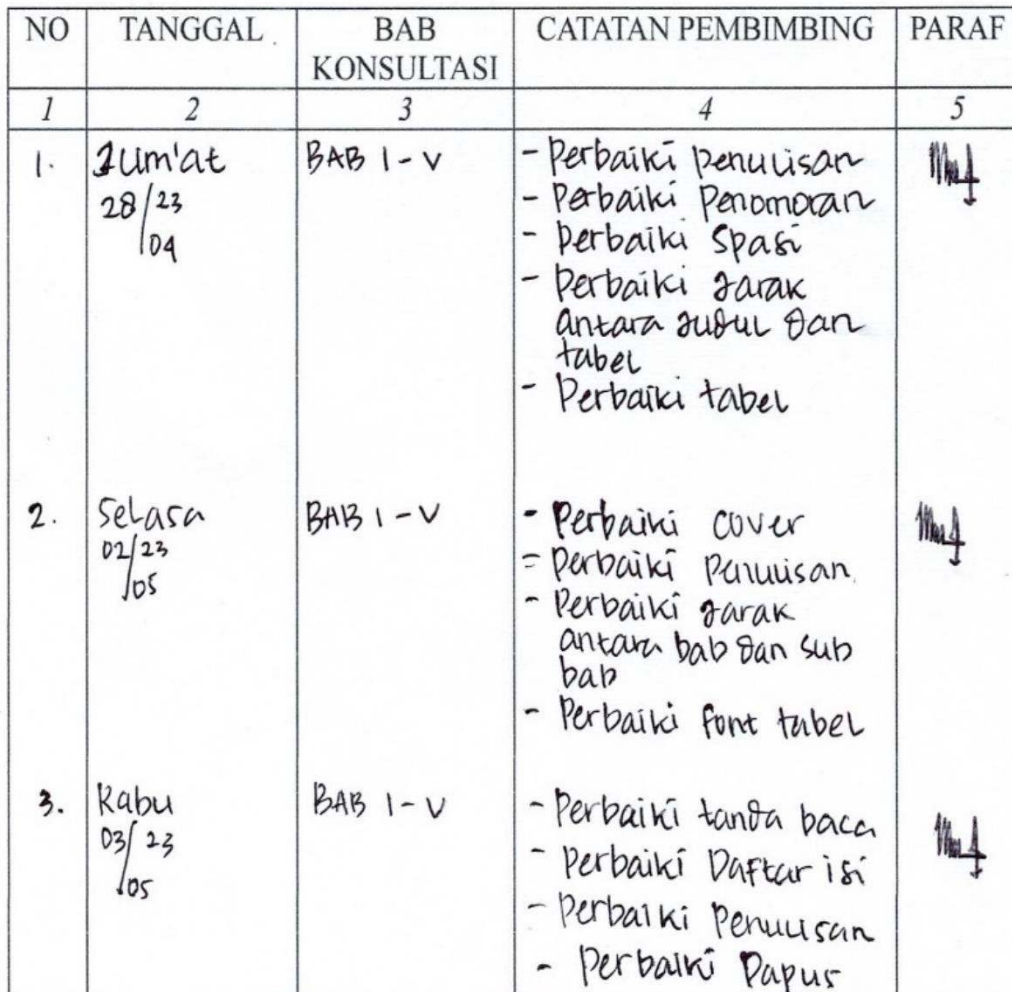 NO TANGGAL BAB KONSULTASI CATATAN PEMBIMBING PARAF
1 2 3 4 5
1. Jum'at BAB I - V - Perbaiki penulisan
28/23/04 - Perbaiki Penomoran
- Perbaiki Spasi
- Perbaiki Jarak
antara Judul dan
tabel
- Perbaiki tabel
2. Selasa BAB I - V - Perbaiki cover
02/23/05 - Perbaiki Penulisan
- Perbaiki Jarak
antara bab dan sub
bab
- Perbaiki font tabel
3. Rabu BAB I - V - Perbaiki tanda baca
03/23/05 - Perbaiki Daftar isi
- Perbaiki Penulisan
- Perbaiki Dapus